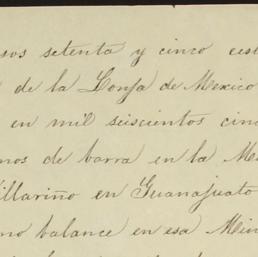 sos setenta y cinco
de la Lonja de Mexico
en mil seiscientos
nos de barra en la
Villariño en Guanajuato
balance en esa